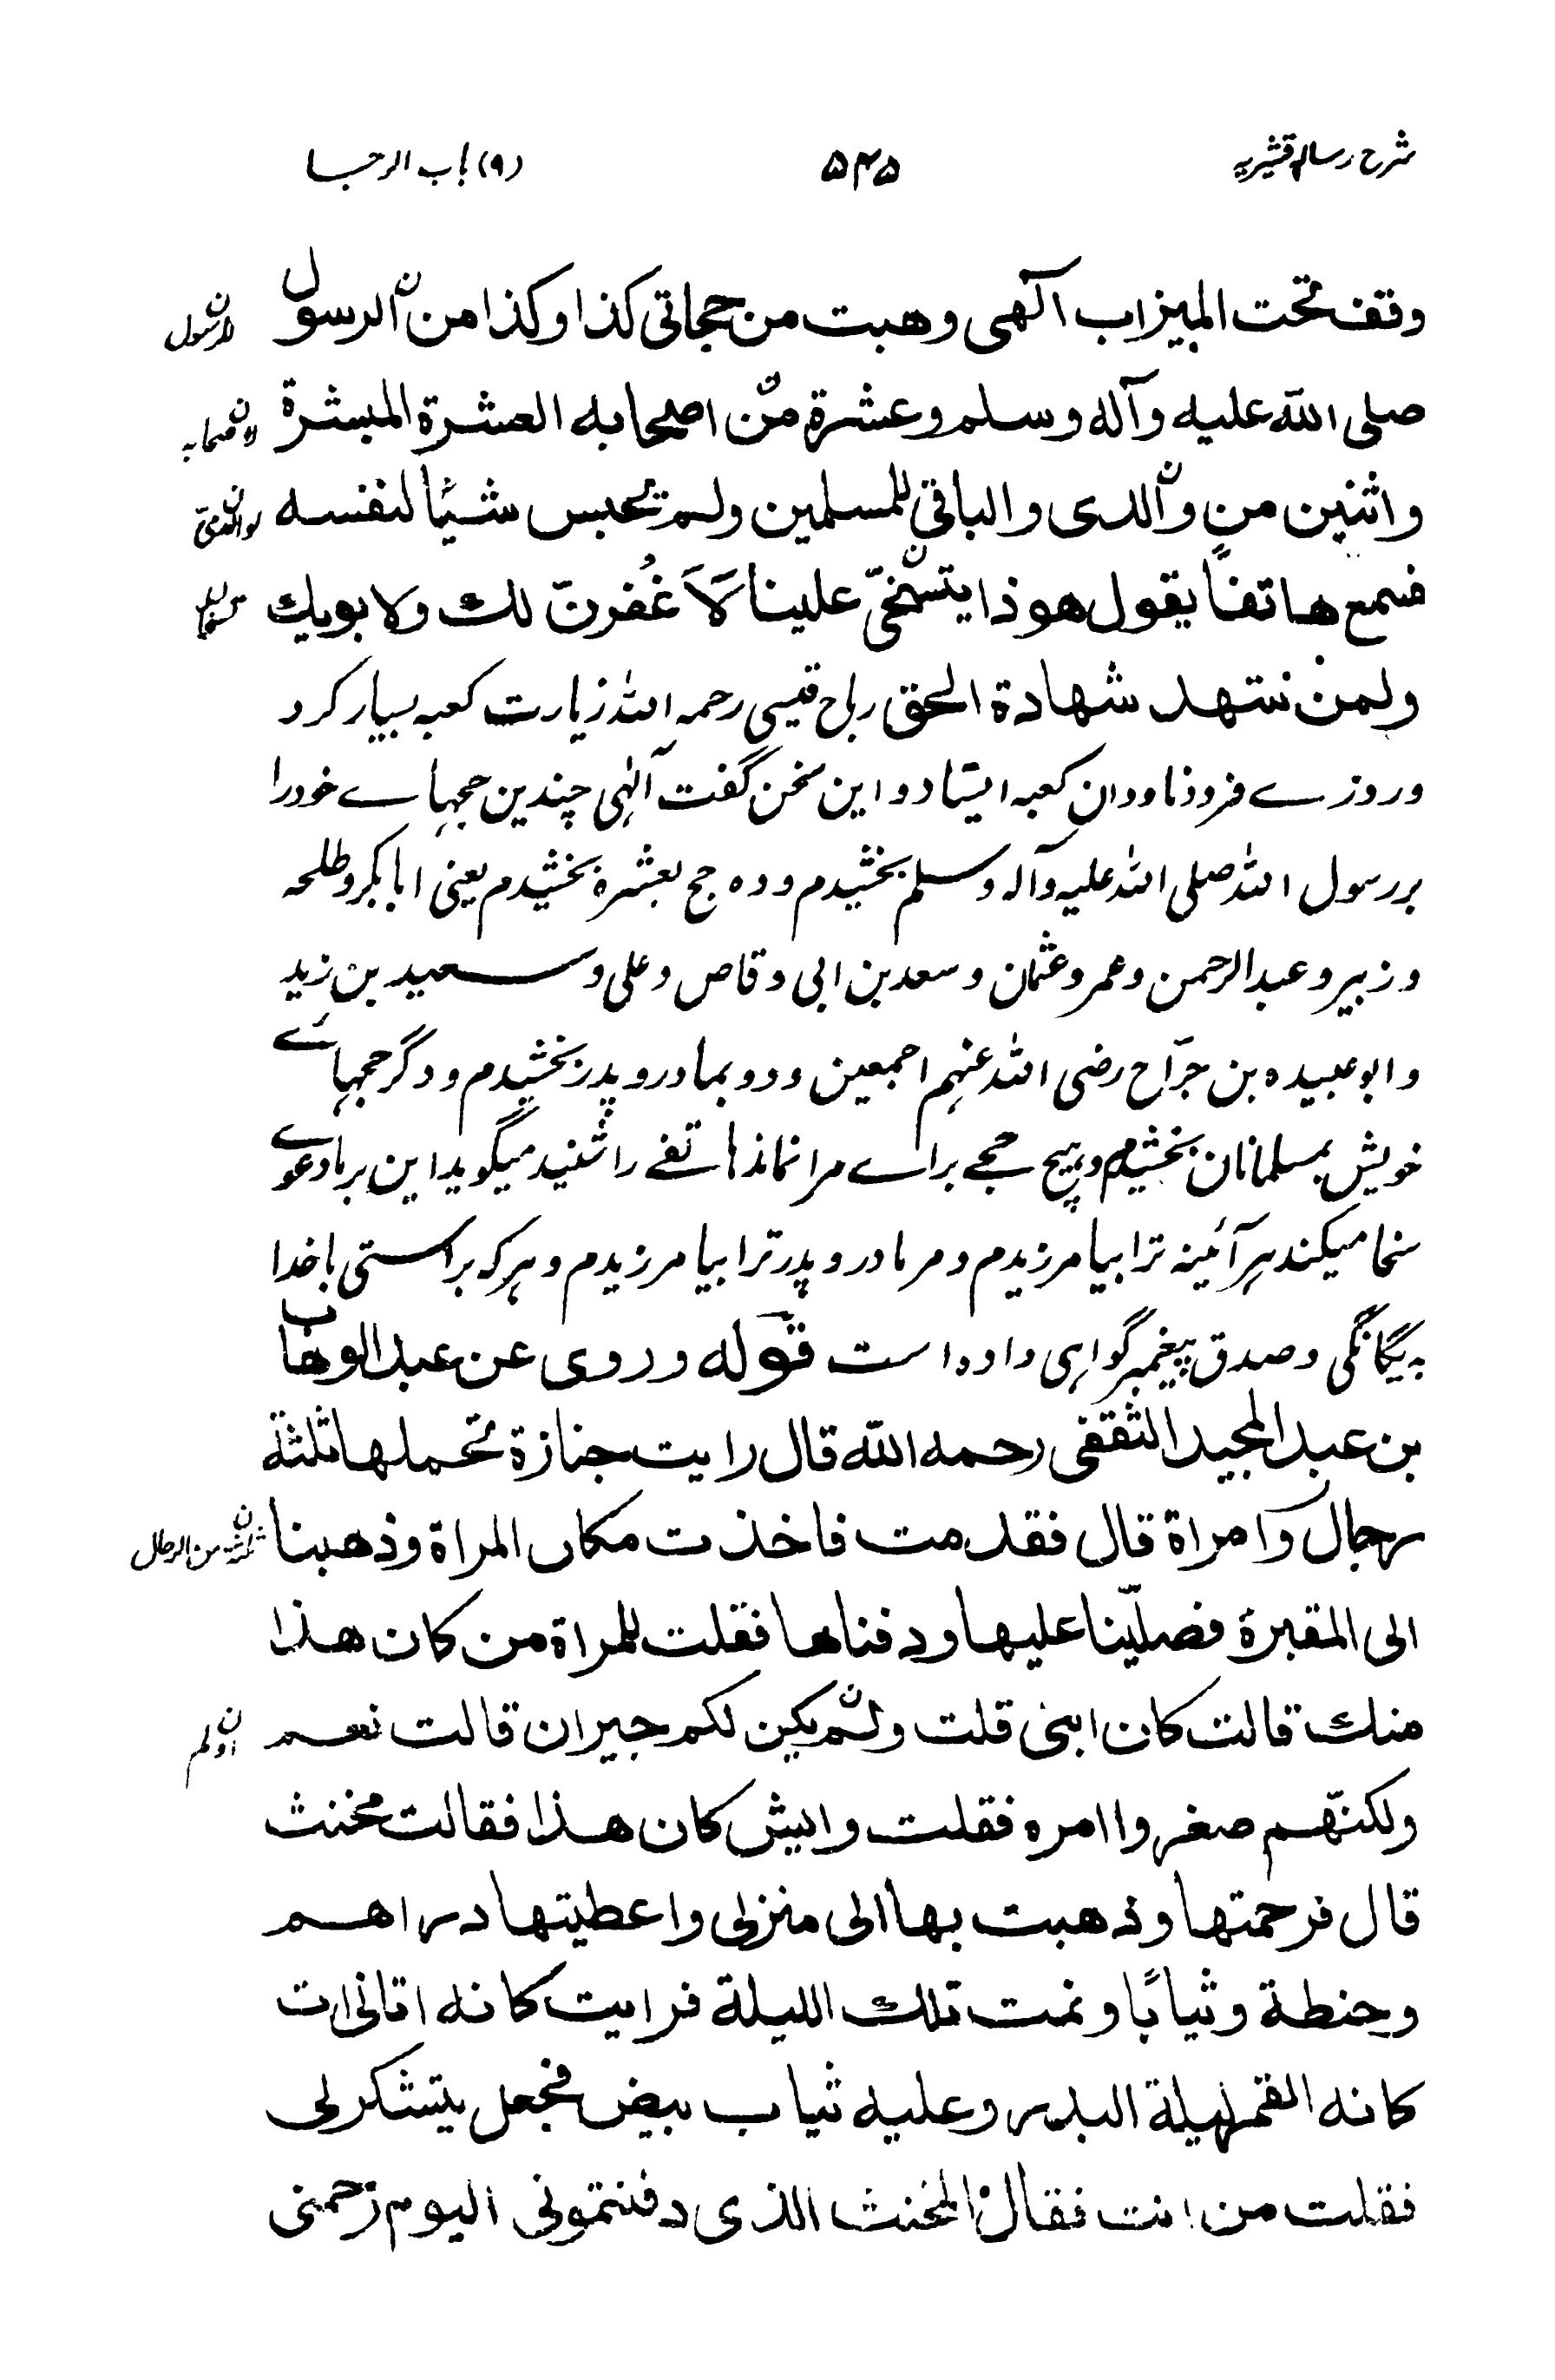 شرح رسالہ قشیریہ
۵۴۵
(۹) باب الرجا
وقف تحت الميزاب الٓهی وهبت من حجاتی كذا وكذا من الرسول
للرسول
صلى الله عليه وآله وسلم وعشرة من اصحابه العشرة المبشرة
لاصحابه
واثنين من والدی والباقی للمسلمين ولم تحبس شيئا لنفسه
لوالدی
فسمع هاتفاً يقول هو ذا يتسخّی علينا لَاَ غُفرنّ لك ولا بويك
ولمن شهد شهادة الحق رباح قیسی رحمہ اللہ زیارت کعبہ بسیار کرد
وروزے فرود ناودان کعبہ ایستاد و این سخن گفت آلٰہی چندین حجہاے خود را
بر رسول اللہ صلی اللہ علیہ وآلہ وسلم بخشیدم و دہ حج بعشرہ بخشیدم یعنی ابابکر و طلحہ
و زبیر و عبدالرحمن و عمر و عثمان و سعد بن ابی وقاص و علی و سعید بن زید
و ابو عبیدہ بن جرّاح رضی اللہ عنہم اجمعین و دو بمادر و پدر بخشیدم و دگر حجہائے
خویش بمسلمانان بخشیدم و ہیچ حجے براے مرا نماند ہاتفے را شنید میگوید این بر ما دعوے
سخا میکند ہرآئینہ ترا بیامرزیدم و مر مادر و پدر ترا بیامرزیدم و ہر کہ براستی با خدا
بہ یگانگی و صدق پیغمبر گواہی دادہ است قوله وروی عن عبد الوهاب
بن عبد المجيد الثقفی رحمه الله قال رايت جنازة تحملها ثلثة
رجال وامراة قال فقدمت فاخذت مكان المراة وذهبنا
ثلثة من الرجال
الى المقبرة فصلّينا عليها ودفناها فقلت للمراة من كان هذا
منك قالت كان ابنی قلت ولم يكن لكم جيران قالت نعم
اولم
ولكنّهم صغروا امره فقلت وايش كان هذا فقالت مخنث
قال فرحمتها وذهبت بها الى منزلی واعطيتها دراهم
وحنطة وثياباً ونمت تلك الليلة فرايت كانه اتانی ات
كانه القمر ليلة البدر وعليه ثياب بيض فجعل يتشكر لی
فقلت من انت فقال المخنث الذی دفنتمونی اليوم رحمنی